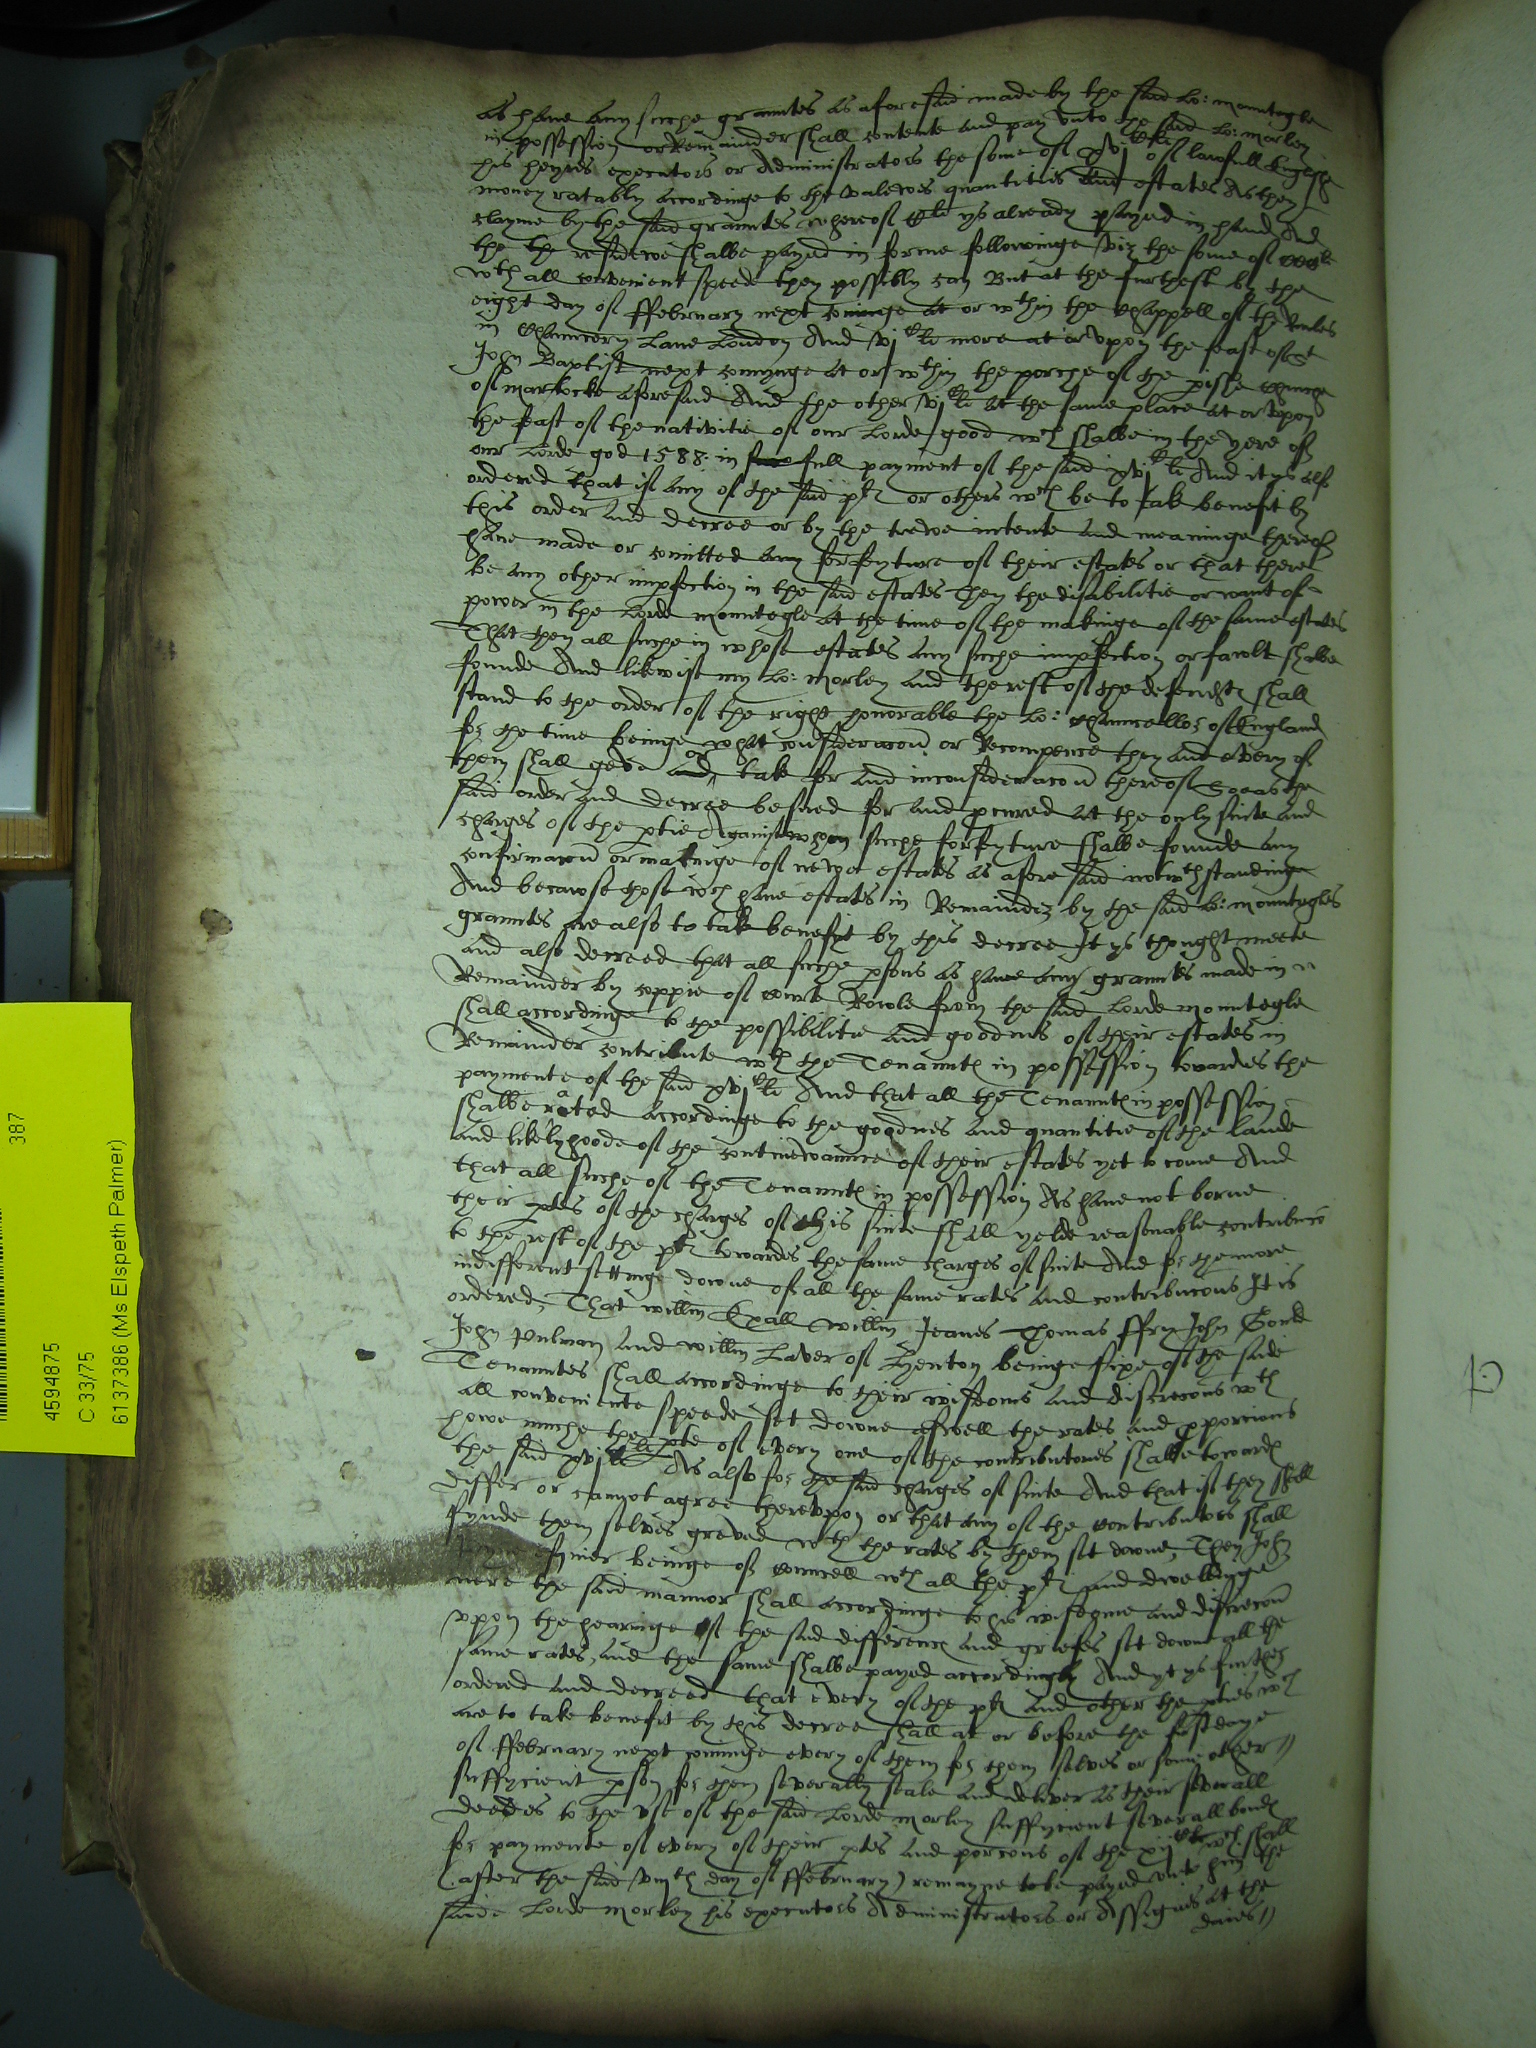 as have any suche grauntes as aforesaid made by the said Lo: mountegle
in possession or Remainder shall contente and pay unto the said Lo: Morley
his heyres executors or Administrators the some of xvj C li of lawfull Englishe
money ratably accordinge to the valewes quantities and estates As they
clayme by the said grauntes whereof li ys already payed in hand And
the the residewe shalbe payed in forme followinge viz the some of
wth all convenient speede they possibly can But at the furthest by the
eight day of ffebruary next cominge at or wthin the Chappell of the Rules
in Chauncery Lane London And vj C li more at or upon the feast of St
John Baptist next comynge at or wthin the porche of the pishe Churche
of Martocke aforesaid And the other vj C li at the same place at or upon
the feast of the nativitie of our Lorde good wch shalbe in the yere of
our Lorde god 1588 in full payment of the said xvj C li And it ys also
ordered that if any of the said plts or others wch be to take benefit by
this order and decree or by the trewe intente and meaninge thereof
have made or comitted any forfeyture of their estates or that there
be any other impfection in the said estates Then the disabilitie or want of
power in the Lorde mountegle at the time of the makinge of the same estates
That then all suche in whose estates any suche impfection or fawlt shalbe
founde And likewise my Lo: Morley and therest of the defendts shall
stand to the order of the right honorable the Lo: Chauncellor of England
for the time beinge what consideracon or Recompence they and every of
them shall geve or take for and in consideracon thereof So as the
said order and decree be sued for and pcured at the only suite and
charges of the ptie Against whom suche forfeyture shalbe founde any
confirmacon or makinge of newe estates as afore said notwthstandinge
And becawse those wch have estates in Remainder by the said Lo: mountegles
grauntes are also to take benefyt by this decree It ys thought meete
and also decreed that all suche psons as have any grauntes made in
Remainder by coppie of courte Rowle from the said Lorde mountegle
shall accordinge to the possibilitie and goodnes of their estates in
Remainder contribute wth the Tenaunts in possession towardes the
paymente of the said xvj C li And that all the Tenaunts in possession
shalbe rated accordinge to the goodnes and quantitie of the lande
and likelyhoode of the continewaunce of their estates yet to come And
that all suche of the Tenaunts in possession As have not borne
their ptes of the charges of this suite shall yelde reasonable contribucon
to the rest of the plts towardes the same charges of suite And for the more
indifferent settinge downe of all the same rates and contribucons It is
ordered, That willm willm Jeanes Thomas ffry John Gould
John Pulman and willm Laver of Henton beinge sixe of the saide
Tenauntes shall accordinge to their wisdoms and discrecons wth
all conveniente speede set downe aswell the rates and pporcions
howe muche the pte of every one of the contributories shalbe towards
the said xvj C li As also for the said charges of suite And that if they shall
differ or cannot agree thereupon or that any of the contributors shall
fynde them selves greved wth the rates by them set downe, Then John
beinge of councell wth all the plts and dwellinge
nere the said mannor shall accordinge to his wisdome and discrecon
upon the hearinge of the said differences and griefes set downe all the
same rates, and the same shalbe payed accordingly And yt ys further
ordered and decreed that every of the plts and other the pties wch
are to take benefit by this decree shall at or before the first daye
of ffebruary next cominge every of them for them selves or some other
suffycient pson for them severally seale and deliver as their severall
deedes to the use of the said Lorde Morley suffycient severall bonds
for paymente of every of their ptes and porcons of the xij C li wch shall
(after the said viijth day of ffebruary) remayne to be payed unto him the
saide Lorde Morley his executors Administrators or Assignes at the
daies
387
4594875
C 33/75
6137386 (Ms Elspeth Palmer)